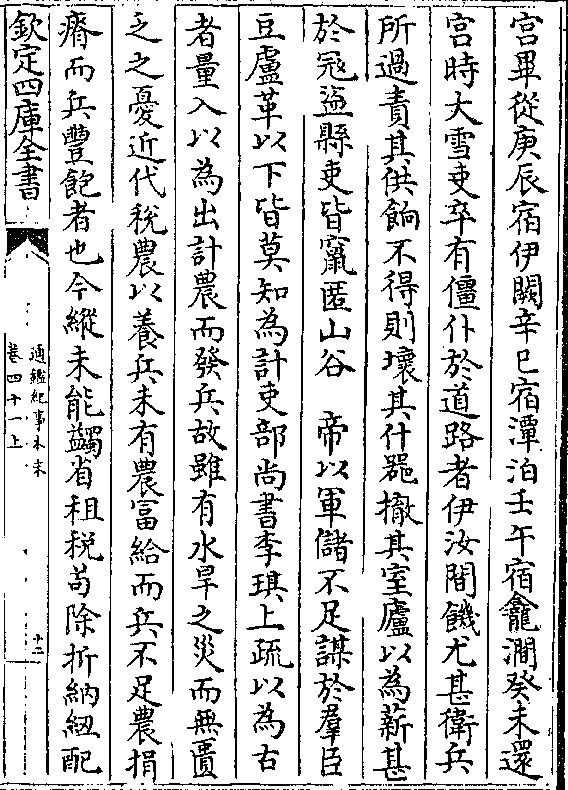 宫畢從庚辰宿伊闕辛巳宿潭泊壬午宿龕澗癸未還
宫時大雪吏卒有僵仆於道路者伊汝間饑尤甚衛兵
所過責其供餉不得則壞其什器撤其室廬以為薪甚
於冦盗縣吏皆竄匿山谷　帝以軍儲不足謀於羣臣
豆盧革以下皆莫知為計吏部尚書李琪上疏以為古
者量入以為出計農而發兵故雖有水旱之災而無匱
乏之憂近代税農以養兵未有農富給而兵不足農捐
瘠而兵豐飽者也今縱未能蠲省租税苟除折納紐配
欽定四庫全書
通鑑紀事本末
卷四十一上
十二